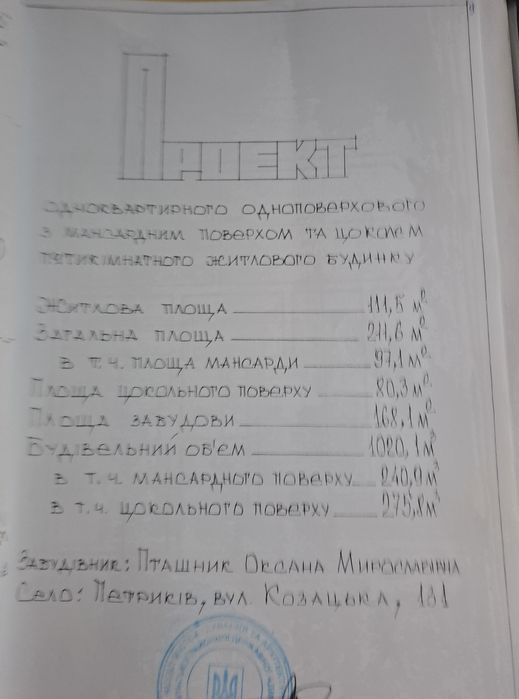 ПРОЕКТ
ОДНОКВАРТИРНОГО ОДНОПОВЕРХОВОГО
З МАНСАРДНИМ ПОВЕРХОМ ТА ЦОКОЛЕМ
ПЯТИКІМНАТНОГО ЖИТЛОВОГО БУДИНКУ
ЖИТЛОВА ПЛОЩА 111,5 м²
ЗАГАЛЬНА ПЛОЩА 211,6 м²
В Т.Ч. ПЛОЩА МАНСАРДИ 97,1 м²
ПЛОЩА ЦОКОЛЬНОГО ПОВЕРХУ 80,3 м²
ПЛОЩА ЗАБУДОВИ 168,1 м²
БУДІВЕЛЬНИЙ ОБ'ЄМ 1020,1 м³
В Т.Ч. МАНСАРДНОГО ПОВЕРХУ 240,9 м³
В Т.Ч. ЦОКОЛЬНОГО ПОВЕРХУ 275,8 м³
ЗАБУДІВНИК: ПТАШНИК ОКСАНА МИРОСЛАВІВНА
СЕЛО: ПЕТРИКІВ, ВУЛ. КОЗАЦЬКА, 131